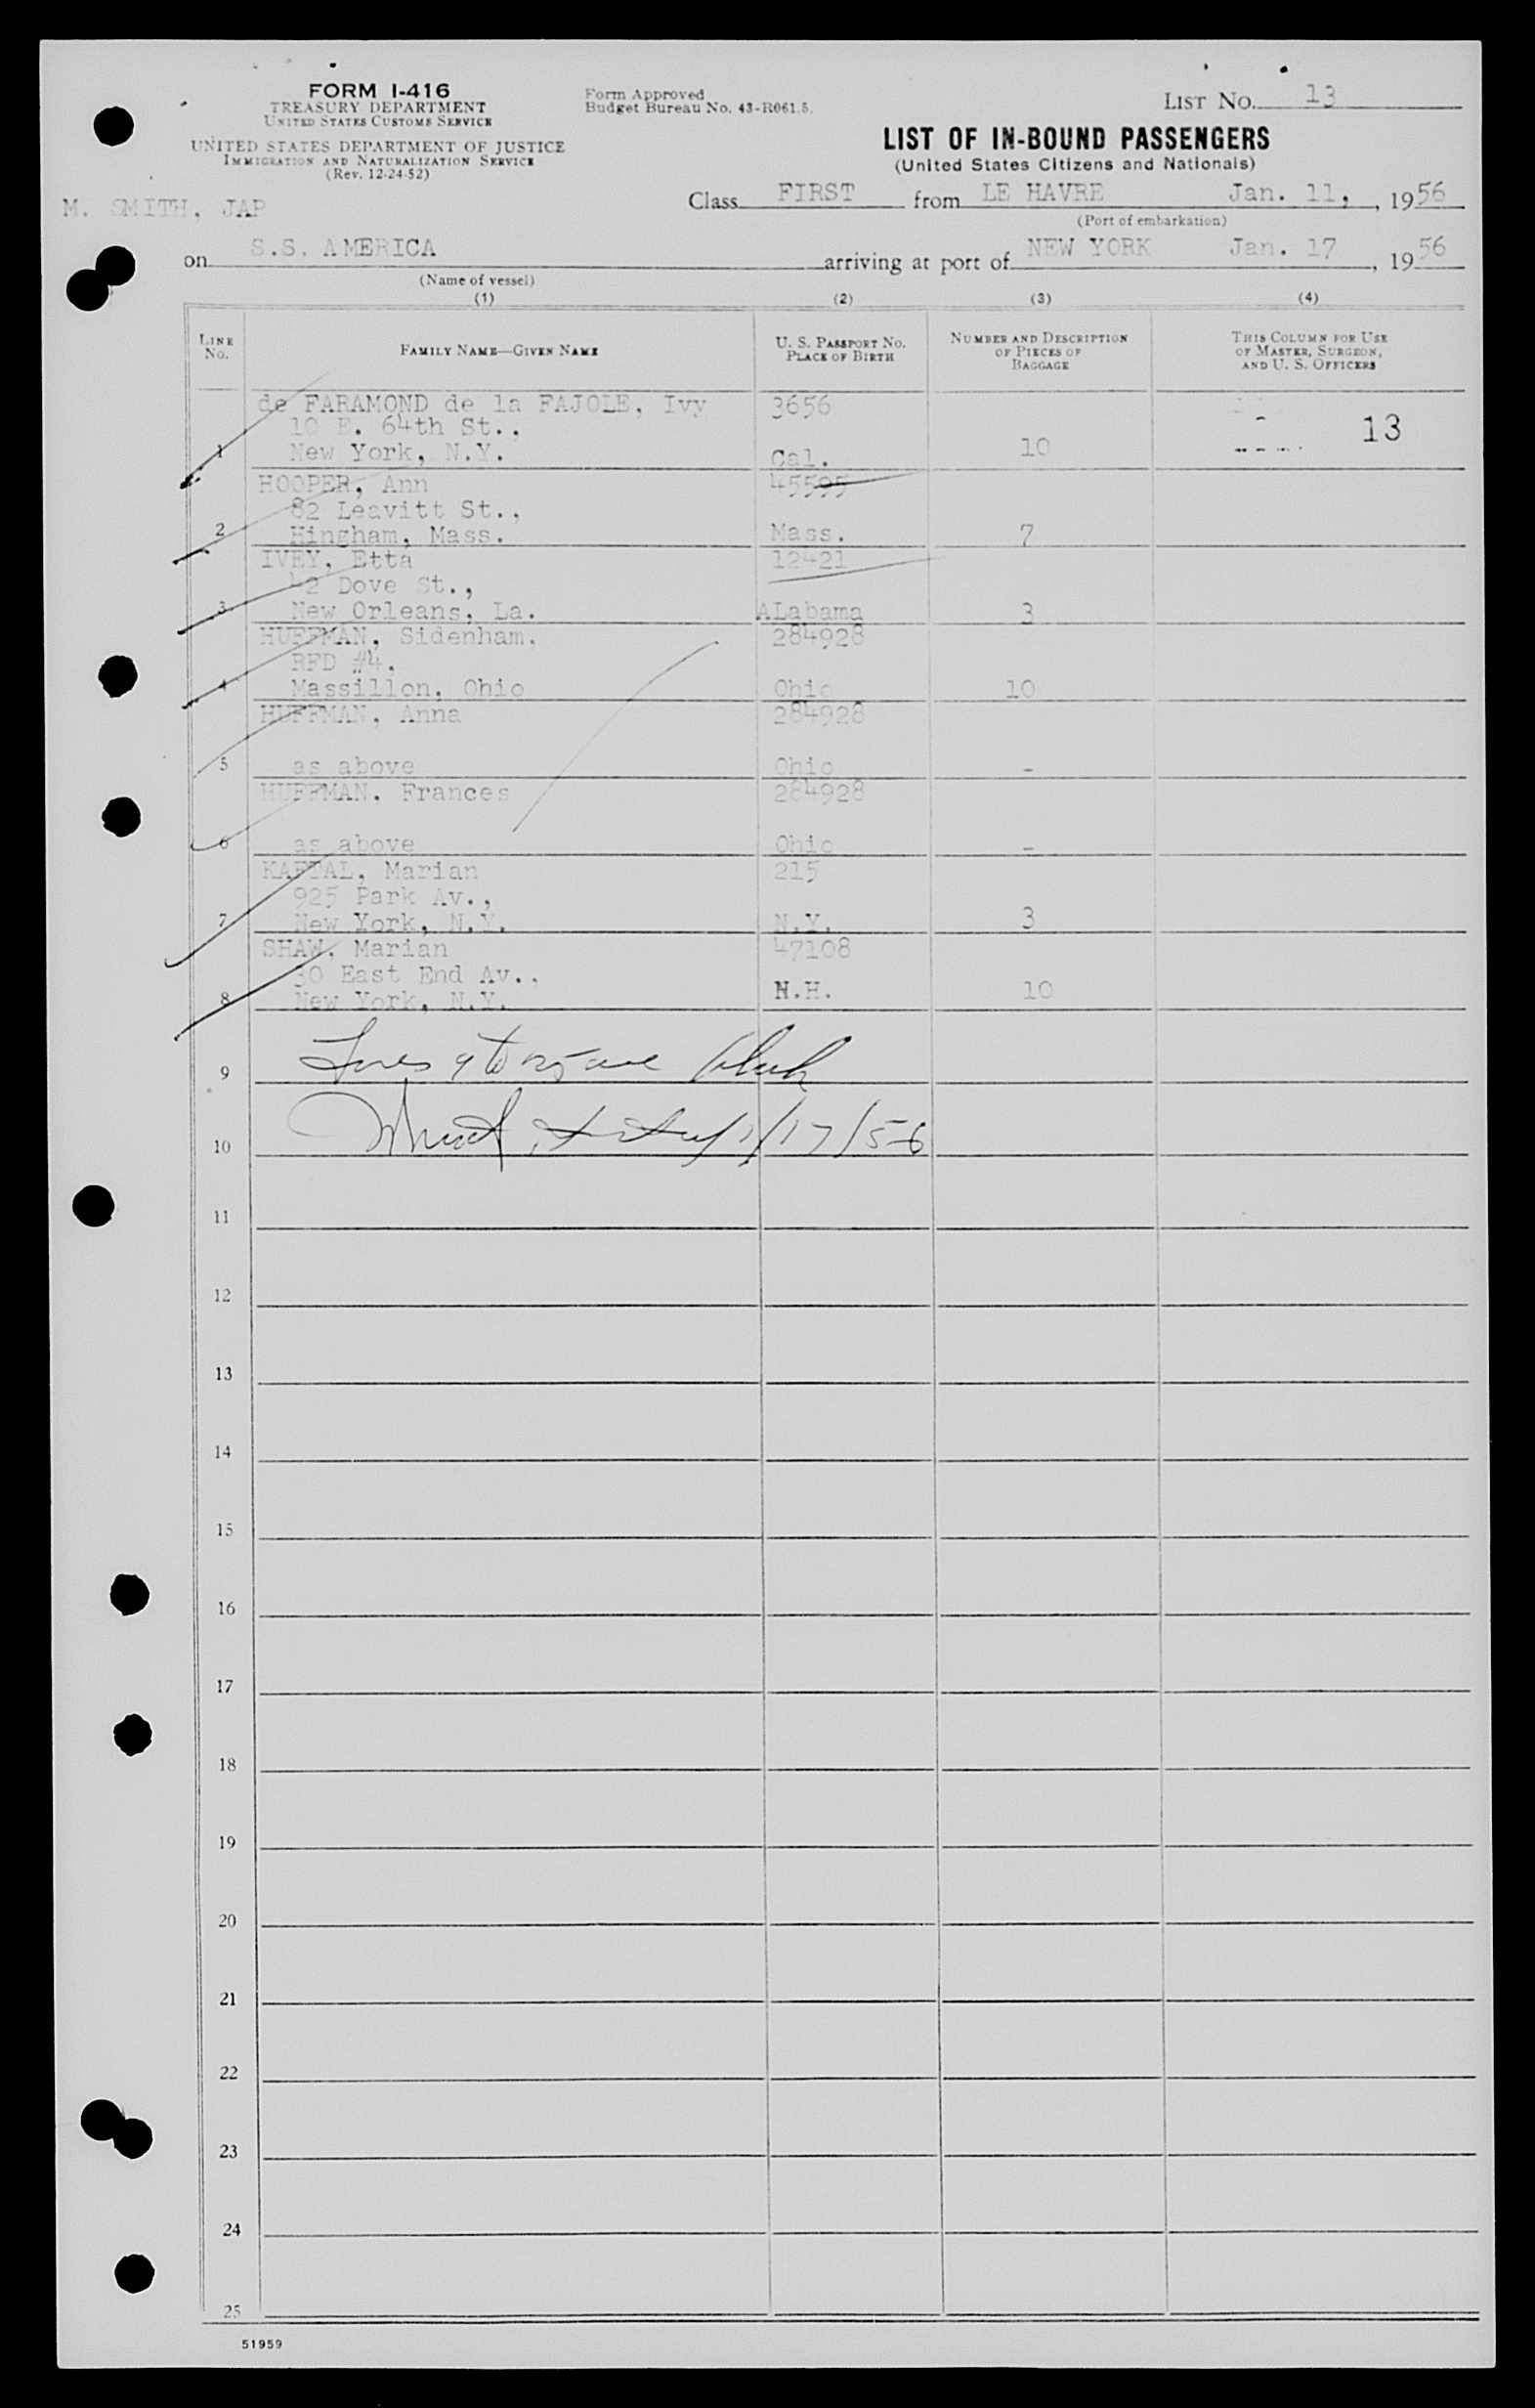 FORM I-416
TREASURY DEPARTMENT
UNITED STATES CUSTOMS SERVICE
UNITED STATES DEPARTMENT OF JUSTICE
IMMIGRATION AND NATURALIZATION SERVICE
(Rev. 12-24-52)
Form Approved
Budget Bureau No. 43-R061.5.
LIST NO. 13
LIST OF IN-BOUND PASSENGERS
(United States Citizens and Nationals)
M. SMITH, JAP
Class FIRST from LE HAVRE Jan. 11, , 1956
(Port of embarkation)
on S.S. AMERICA arriving at port of NEW YORK Jan. 17 , 1956
(Name of vessel)
(1) (2) (3) (4)
LINE NO. FAMILY NAME—GIVEN NAME U. S. PASSPORT NO. PLACE OF BIRTH NUMBER AND DESCRIPTION OF PIECES OF BAGGAGE THIS COLUMN FOR USE OF MASTER, SURGEON, AND U. S. OFFICERS
de FARAMOND de la FAJOLE, Ivy 3656
10 E. 64th St., 13
1 New York, N.Y. Cal. 10
HOOPER, Ann 45595
82 Leavitt St.,
2 Hingham, Mass. Mass. 7
IVEY, Etta 12421
42 Dove St.,
3 New Orleans, La. ALabama 3
HUFFMAN, Sidenham. 284928
RFD #4.
4 Massillon, Ohio Ohio 10
HUFFMAN, Anna 284928
5 as above Ohio -
HUFFMAN. Frances 284928
6 as above Ohio -
KAFTAL, Marian 215
925 Park Av.,
7 New York, N.Y. N.Y. 3
SHAW, Marian 47108
30 East End Av.,
8 New York, N.Y. N.H. 10
9 Lines 9 to 25 are blank
10 1/17/56
11
12
13
14
15
16
17
18
19
20
21
22
23
24
25
51959